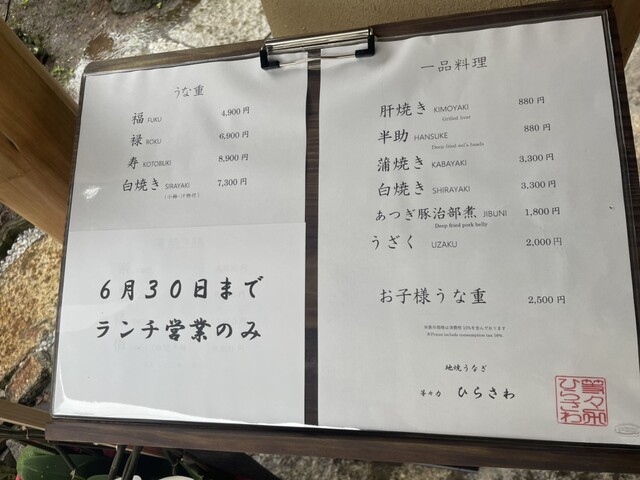 うな重
福 FUKU 4,900円
禄 ROKU 6,900円
寿 KOTOBUKI 8,900円
白焼き SIRAYAKI 7,300円
6月30日まで
ランチ営業のみ
一品料理
肝焼き KIMOYAKI 880円
Grilled liver
半助 HANSUKE 880円
Deep fried eel's heads
蒲焼き KABAYAKI 3,300円
白焼き SHIRAYAKI 3,300円
あつぎ豚治部煮 JIBUNI 1,800円
Deep fried pork belly
うざく UZAKU 2,000円
お子様うな重 2,500円
※表示価格は消費税10%を含んでおります
※Prices include consumption tax 10%.
地焼うなぎ
等々力 ひらさわ
等々力
ひらさわ